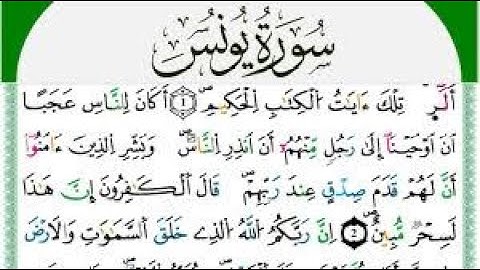 سُورَةُ يُونُسَ
الٓرۚ تِلْكَ ءَايَٰتُ اُ۬لْكِتَٰبِ اِ۬لْحَكِيمِۖ ۝١ أَكَانَ لِلنَّاسِ عَجَباً
اَنَ اَوْحَيْنَآ إِلَىٰ رَجُلٖ مِّنْهُمُۥٓ أَنَ اَنذِرِ اِ۬لنَّاسَۖ وَبَشِّرِ اِ۬لذِينَ ءَامَنُوٓاْ
أَنَّ لَهُمْ قَدَمَ صِدْقٍ عِندَ رَبِّهِمْۖ قَالَ اَ۬لْكَٰفِرُونَ إِنَّ هَٰذَا
لَسِحْرٞ مُّبِينٌۖ ۝٢ اِنَّ رَبَّكُمُ اُ۬للَّهُ اُ۬لذِے خَلَقَ اَ۬لسَّمَٰوَٰتِ وَالَارْضَ